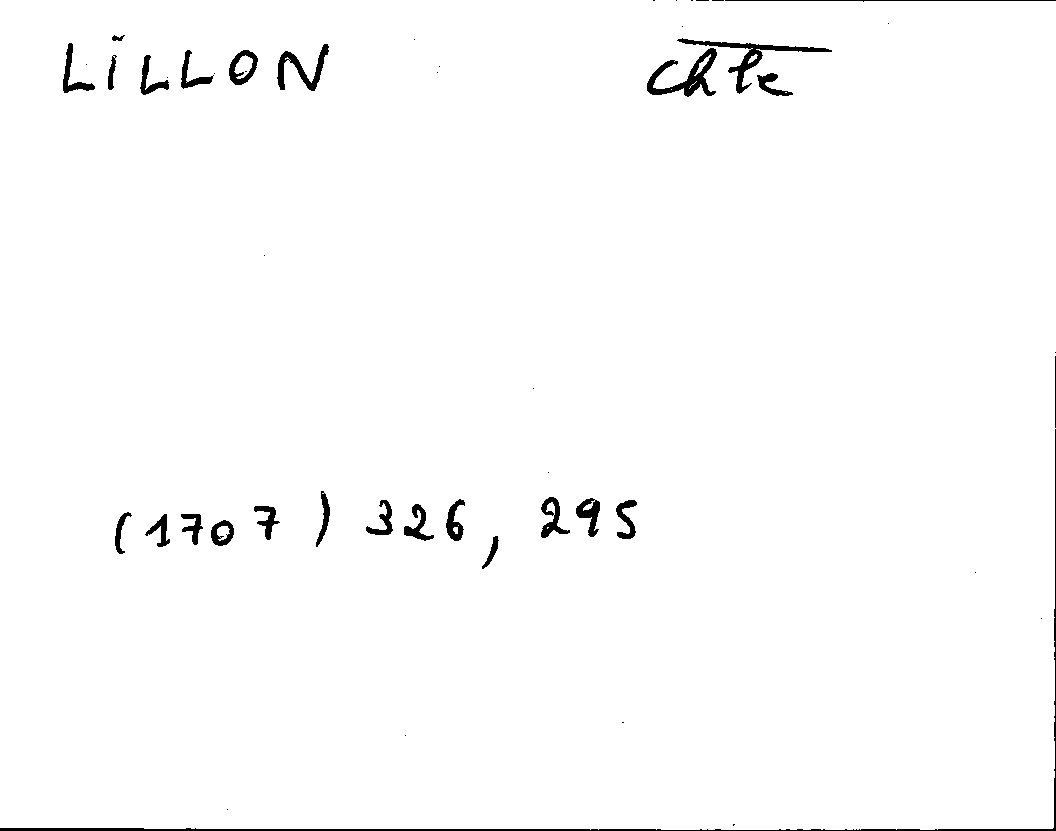 LILLON Chle
(1707) 326, 295